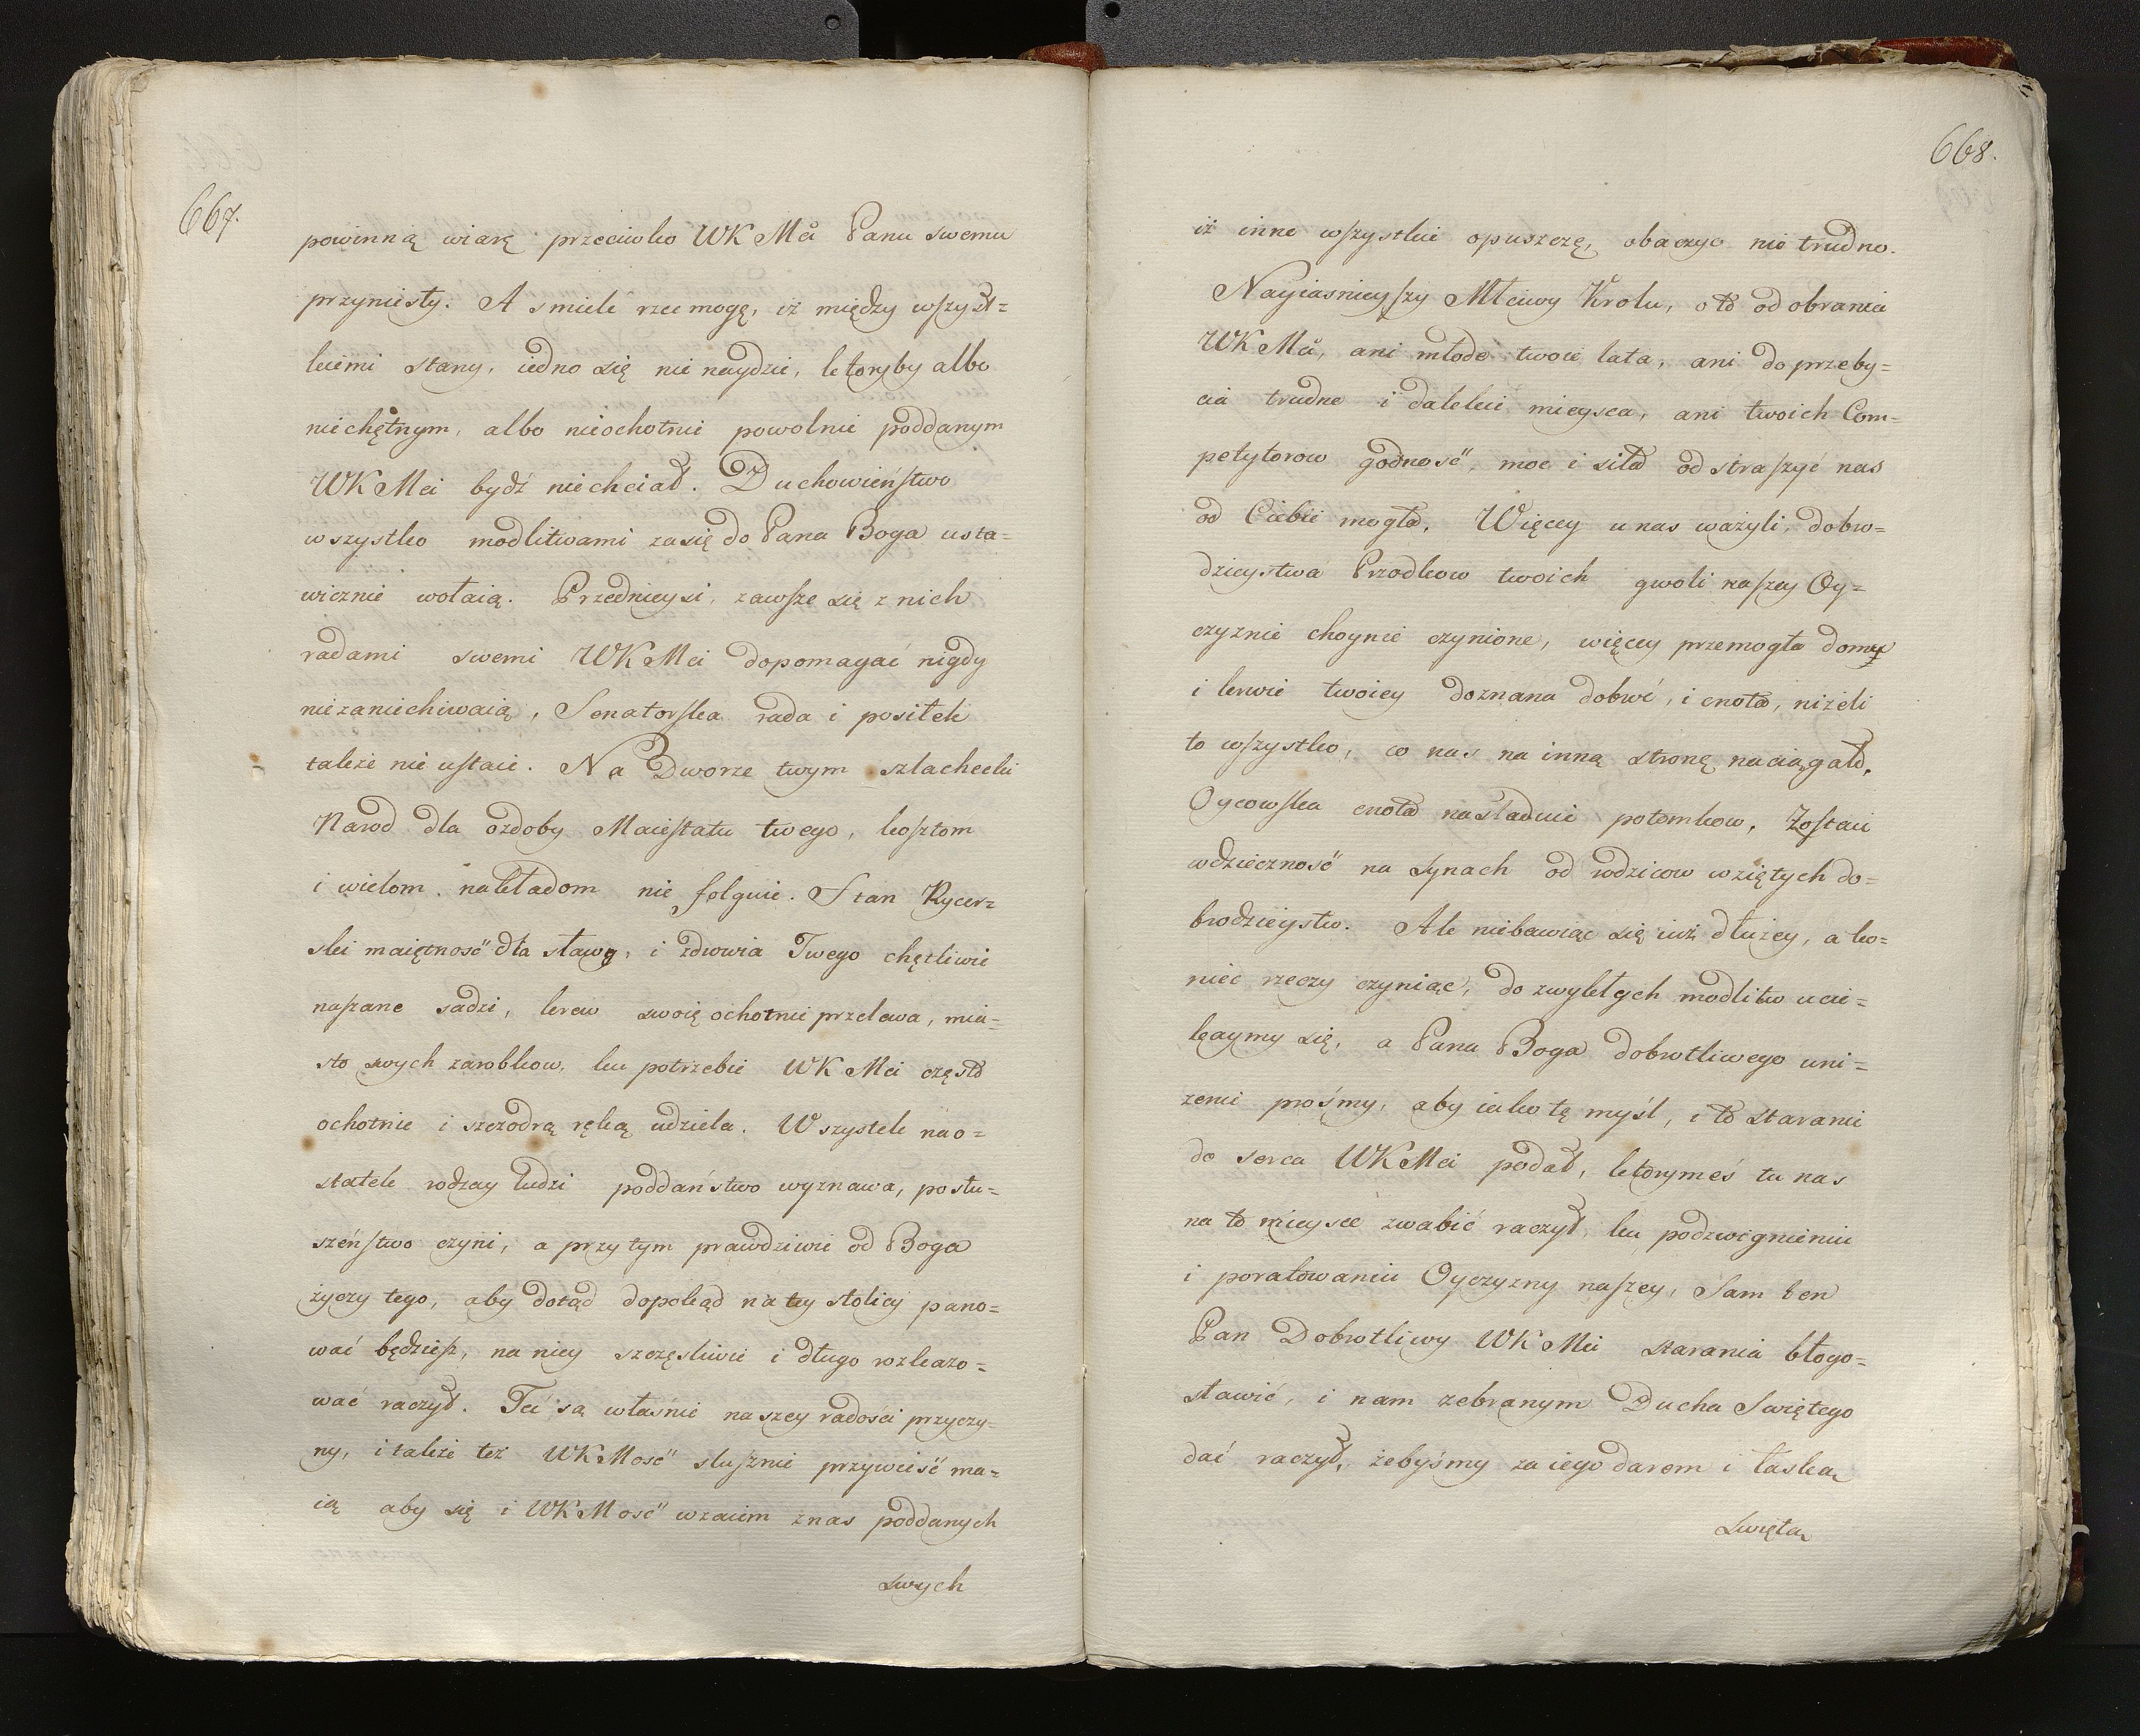 667.
powinną wiarę przeciwko WK Mci Panu swemu
przyniosły. A smiele rzec mogę, iż między wszyst=
kiemi stany, iedno się nie naydzie, ktoryby albo
niechętnym, albo nieochotnie powolnie poddanym
WK Mci bydź niechciał. Duchowieństwo
wszystko modlitwami zasię do Pana Boga usta=
wicznie wołaią. Przednieysi, zawsze się z nich
radami swemi WK Mci dopomagać nigdy
niezaniechiwaią, Senatorska rada i posiłek
także nie ustaie. Na Dworze twym szlachecki
Narod dla ozdoby Maiestatu twego, kosztom
i wielom nakładom nie folguie. Stan Rycer=
ski maiętność dla sławy, i zdrowia Twego chętliwie
naszane sadzi, krew swoię ochotnie przelewa, mia=
sto swych zarobkow, ku potrzebie WK Mci często
ochotnie i szczodrą ręką udziela. Wszystek nao=
statek rodzay ludzi poddaństwo wyznawa, posłu=
szeństwo czyni, a przytym prawdziwie od Boga
życzy tego, aby dotąd dopokąd na tey stolicy pano=
wać będziesz, na niey szczęsliwie i długo rozkazo=
wać raczył. Teć są właśnie naszey radości przyczy=
ny, i także też WK Mość słusznie przywieść ma=
ią aby się i WK Mość wzaiem znas poddanych
swych
668.
iż inne wszystkie opuszczę, obaczyć nie trudno.
Nayiasnieyszy Młciwy Krolu, oto od obrania
WK Mci, ani młode twoie lata, ani do przeby=
cia trudne i dalekie mieysca, ani twoich Com=
petytorow godność, moc i siła odstraszyć nas
od Ciebie mogła. Więcey u nas ważyli, dobro=
dzieystwa Przodkow twoich gwoli naszey Oy=
czyznie choynie czynione, więcey przemogła domu
i krwie twoiey doznana dobroć, i cnota, niżeli
to wszystko, co nas na inną stronę naciągało.
Oycowska cnota nasladuie potomkow, Zostaie
wdzieczność na synach od rodzicow wziętych do=
brodzieystw. Ale niebawiąc się iuż dłużey, a ko=
niec rzeczy czyniąc, do zwykłych modlitw ucie=
kaymy się, a Pana Boga dobrotliwego uni=
żenie prośmy, aby iako tę myśl, i to staranie
do serca WK Mci podał, ktorymeś tu nas
na to mieysce zwabić raczył ku podzwignieniu
i poratowaniu Oyczyzny naszey, Sam ten
Pan Dobrotliwy WK Mci starania błogo=
sławić, i nam zebranym Ducha Swiętego
dać raczył, żebyśmy za iego darem i łaską
swiętą